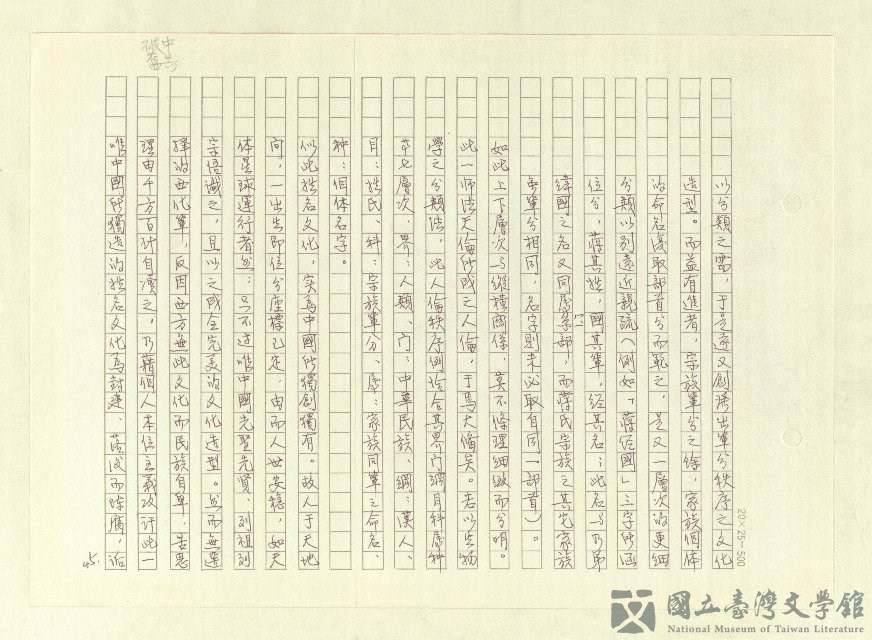 以分類之需，于是遂又創勝出輩分秩序之文化
造型。而益有進者，宗族輩分之餘，家族個体
的命名復取部首分而範之，是又一層次的更細
分類以別遠近親疏（例如「蔣經國」三字所涵
位分，蔣其姓，國其輩，經其名；此名与乃弟
緯國之名又同屬「糸」部，而蔣氏宗族之其它家族
無輩分相同，名字則未必取自同一部首）。
如此上下層次与縱橫關係，莫不條理細緻而分明。
此一師法天倫所成之人倫，于焉大備矣。若以生物
學之分類法，此人倫秩序例恰合其界門綱目科屬种
等七層次，界：人類、門：中華民族、綱：漢人、
目：姓氏、科：宗族輩分、屬：家族同輩之命名、
种：個体名字。
似此姓名文化，实為中國所獨創獨有。故人于天地
间，一出生即位分座標已定，由而人世安穩，如天
体星球運行者然；只不过唯中國先聖先賢、列祖列
宗悟識之，且以之成全完美的文化造型。然而無選
擇的西化輩，反因西方無此文化而民族自卑，苦思
理由千方百計自瀆之，乃藉個人本位主義攻訐此一
唯中國所獨造的姓名文化為封建、落後而陳腐，詬
45.
20×25＝500
國立臺灣文學館
National Museum of Taiwan Literature